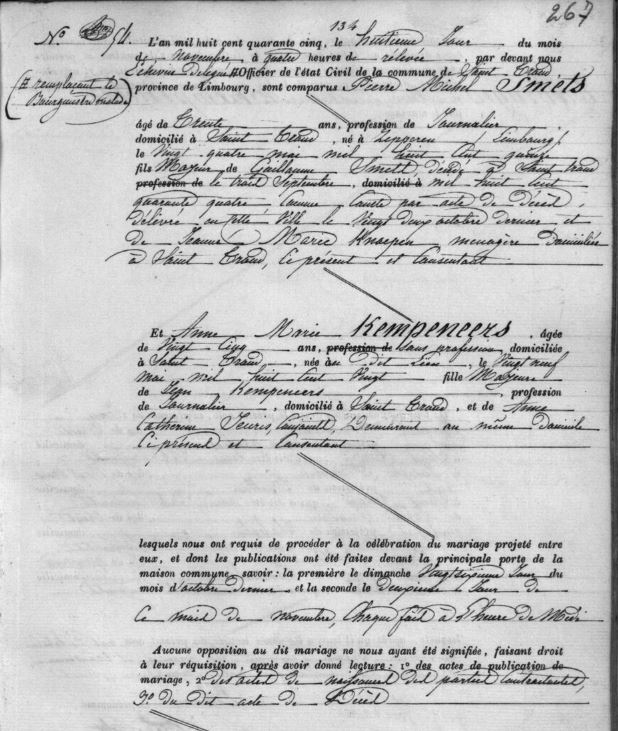 134
267
N.º 54.
L'an mil huit cent quarante cinq, le huitieme Jour du mois
de Novembre à quatre heures de rélevée, par devant nous
Echevin délégué # Officier de l'état Civil de la commune de Saint Trond
# remplaçant le
Bourgmestre malade
province de Limbourg, sont comparus Pierre Michel Smets
âgé de Trente ans, profession de Journalier
domicilié à Saint Trond, né à Zepperen Limbourg
le Vingt quatre mai mil huit cent quinze
fils Majeur de Guillaume Smets décédé à Saint Trond
profession de le trois Septembre, domicilié à mil huit cent
quarante quatre comme conste par acte de Décès,
délivré en cette Ville le Vingt deux octobre dernier et
de Jeanne Marie Knaepen menagère domiciliée
à Saint Trond, ci présent et Consentant
Et Anne Marie Kempeneers, âgée
de Vingt Cinq ans, profession de Sans profession, domiciliée
à Saint Trond, née au Dit Lieu, le Vingt neuf
Mai mil huit cent Vingt fille Majeure
de Jean Kempeneers, profession
de Journalier, domicilié à Saint Trond, et de Anne
Catherine Jeuris, Conjoints, Demeurant au même domicile
Ci présent et Consentant
lesquels nous ont requis de procéder à la célébration du mariage projeté entre
eux, et dont les publications ont été faites devant la principale porte de la
maison commune, savoir : la première le dimanche Vingtsixieme Jour du
mois d'octobre dernier et la seconde le Deuxieme Jour de
Ce mois de novembre, Chaque fois à l'heure de Midi
Aucune opposition au dit mariage ne nous ayant été signifiée, faisant droit
à leur réquisition, après avoir donné lecture : 1º des actes de publication de
mariage, 2º des actes de naissance des parties contractantes,
3º du Dit acte de Décès